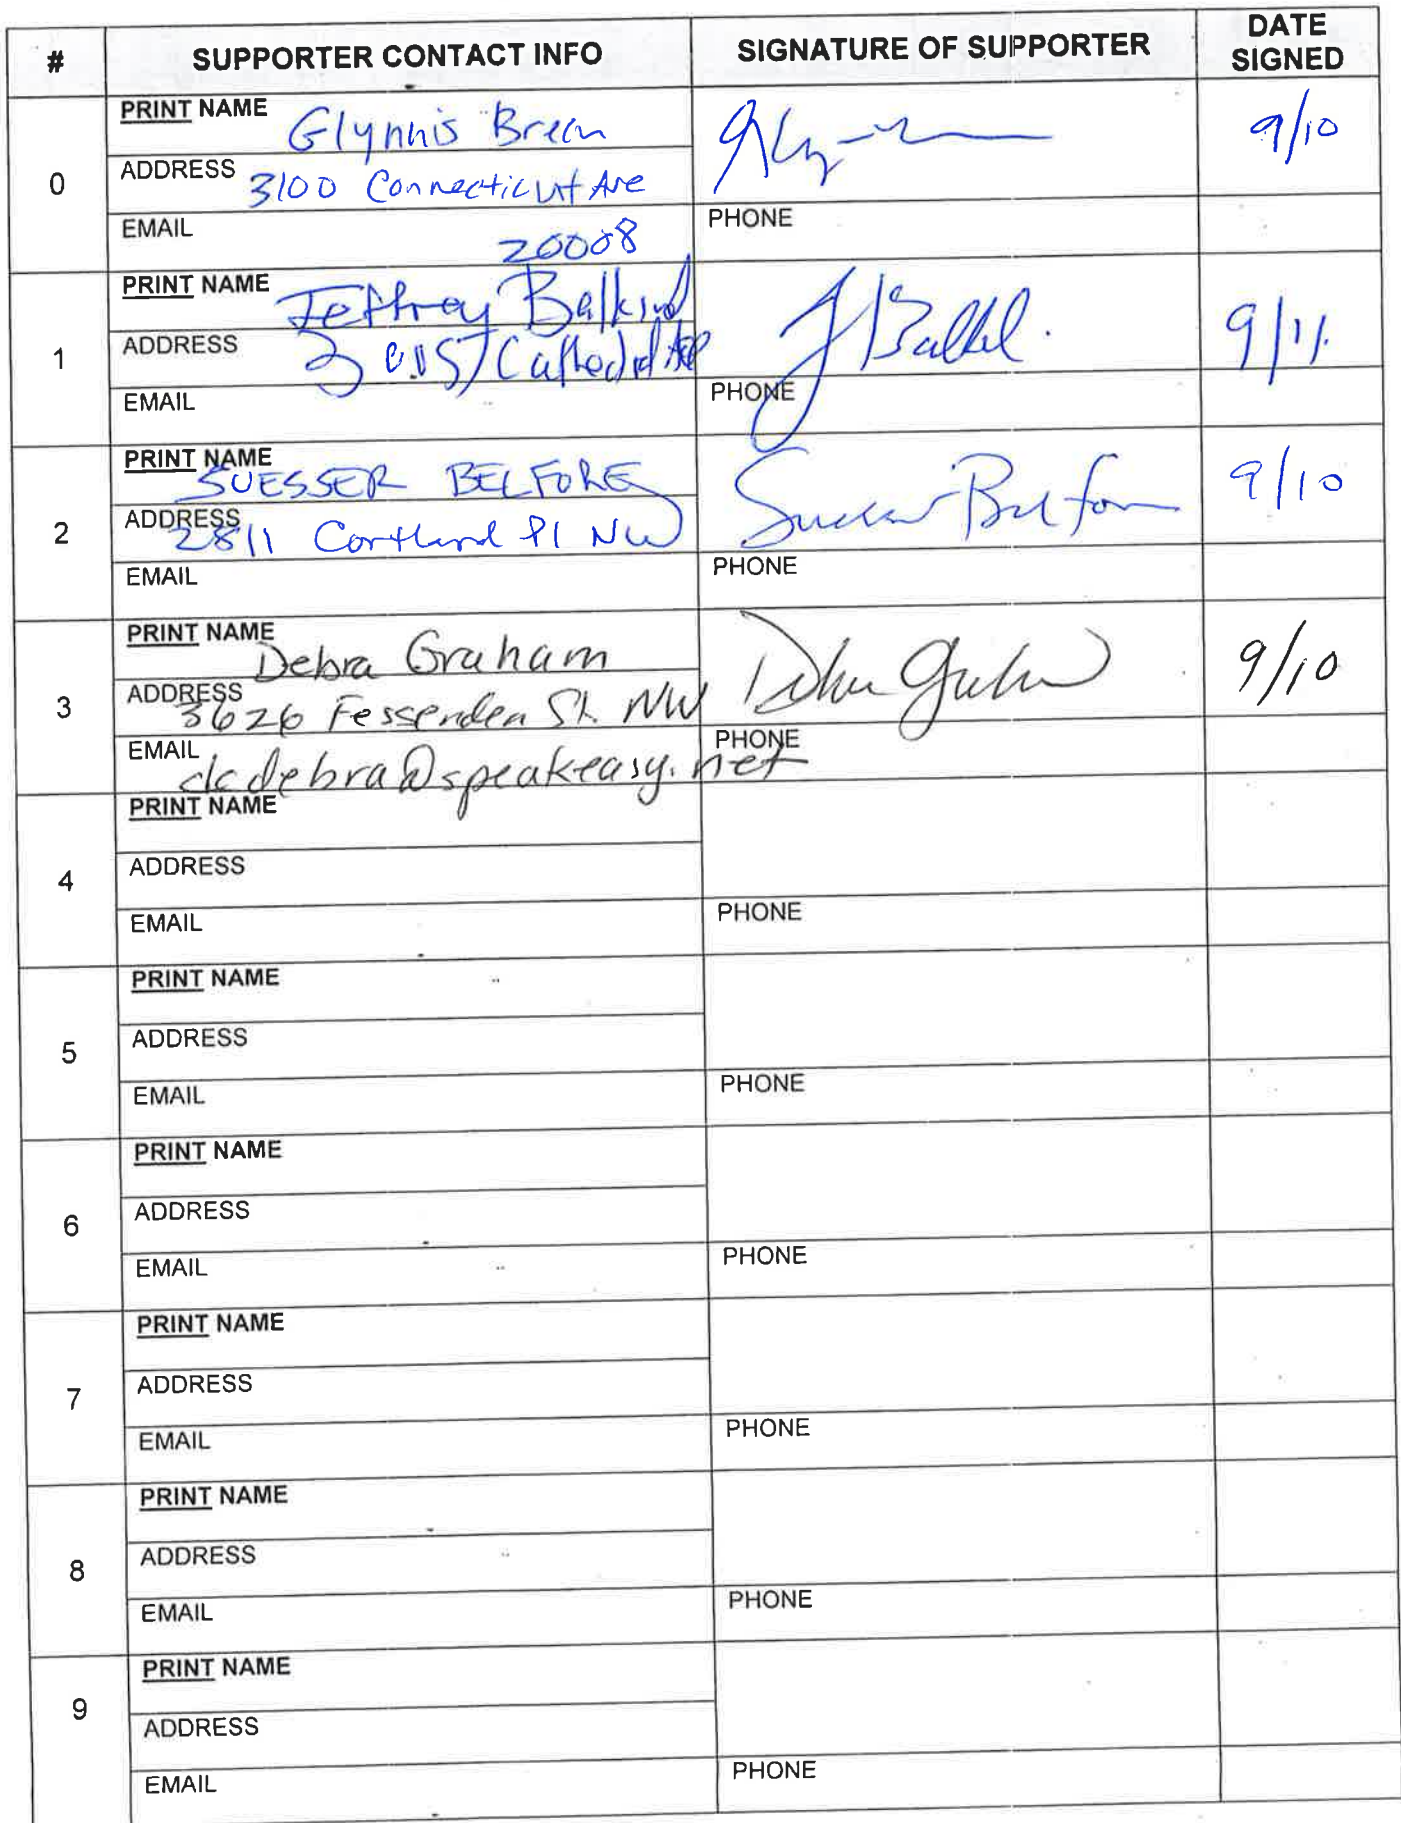 # SUPPORTER CONTACT INFO SIGNATURE OF SUPPORTER DATE SIGNED
0
PRINT NAME Glynnis 9/10
ADDRESS 3100 Connecticut Ave
EMAIL 20008 PHONE
1
PRINT NAME Jeffrey Balkind 9/11
ADDRESS Cathedral Ave
EMAIL PHONE
2
PRINT NAME SUESSER BELFORE 9/10
ADDRESS 2811 Cortland Pl NW
EMAIL PHONE
3
PRINT NAME Debra Graham Debra Graham 9/10
ADDRESS 3626 Fessenden St. NW
EMAIL dcdebra@speakeasy.net PHONE
4
PRINT NAME
ADDRESS
EMAIL PHONE
5
PRINT NAME
ADDRESS
EMAIL PHONE
6
PRINT NAME
ADDRESS
EMAIL PHONE
7
PRINT NAME
ADDRESS
EMAIL PHONE
8
PRINT NAME
ADDRESS
EMAIL PHONE
9
PRINT NAME
ADDRESS
EMAIL PHONE